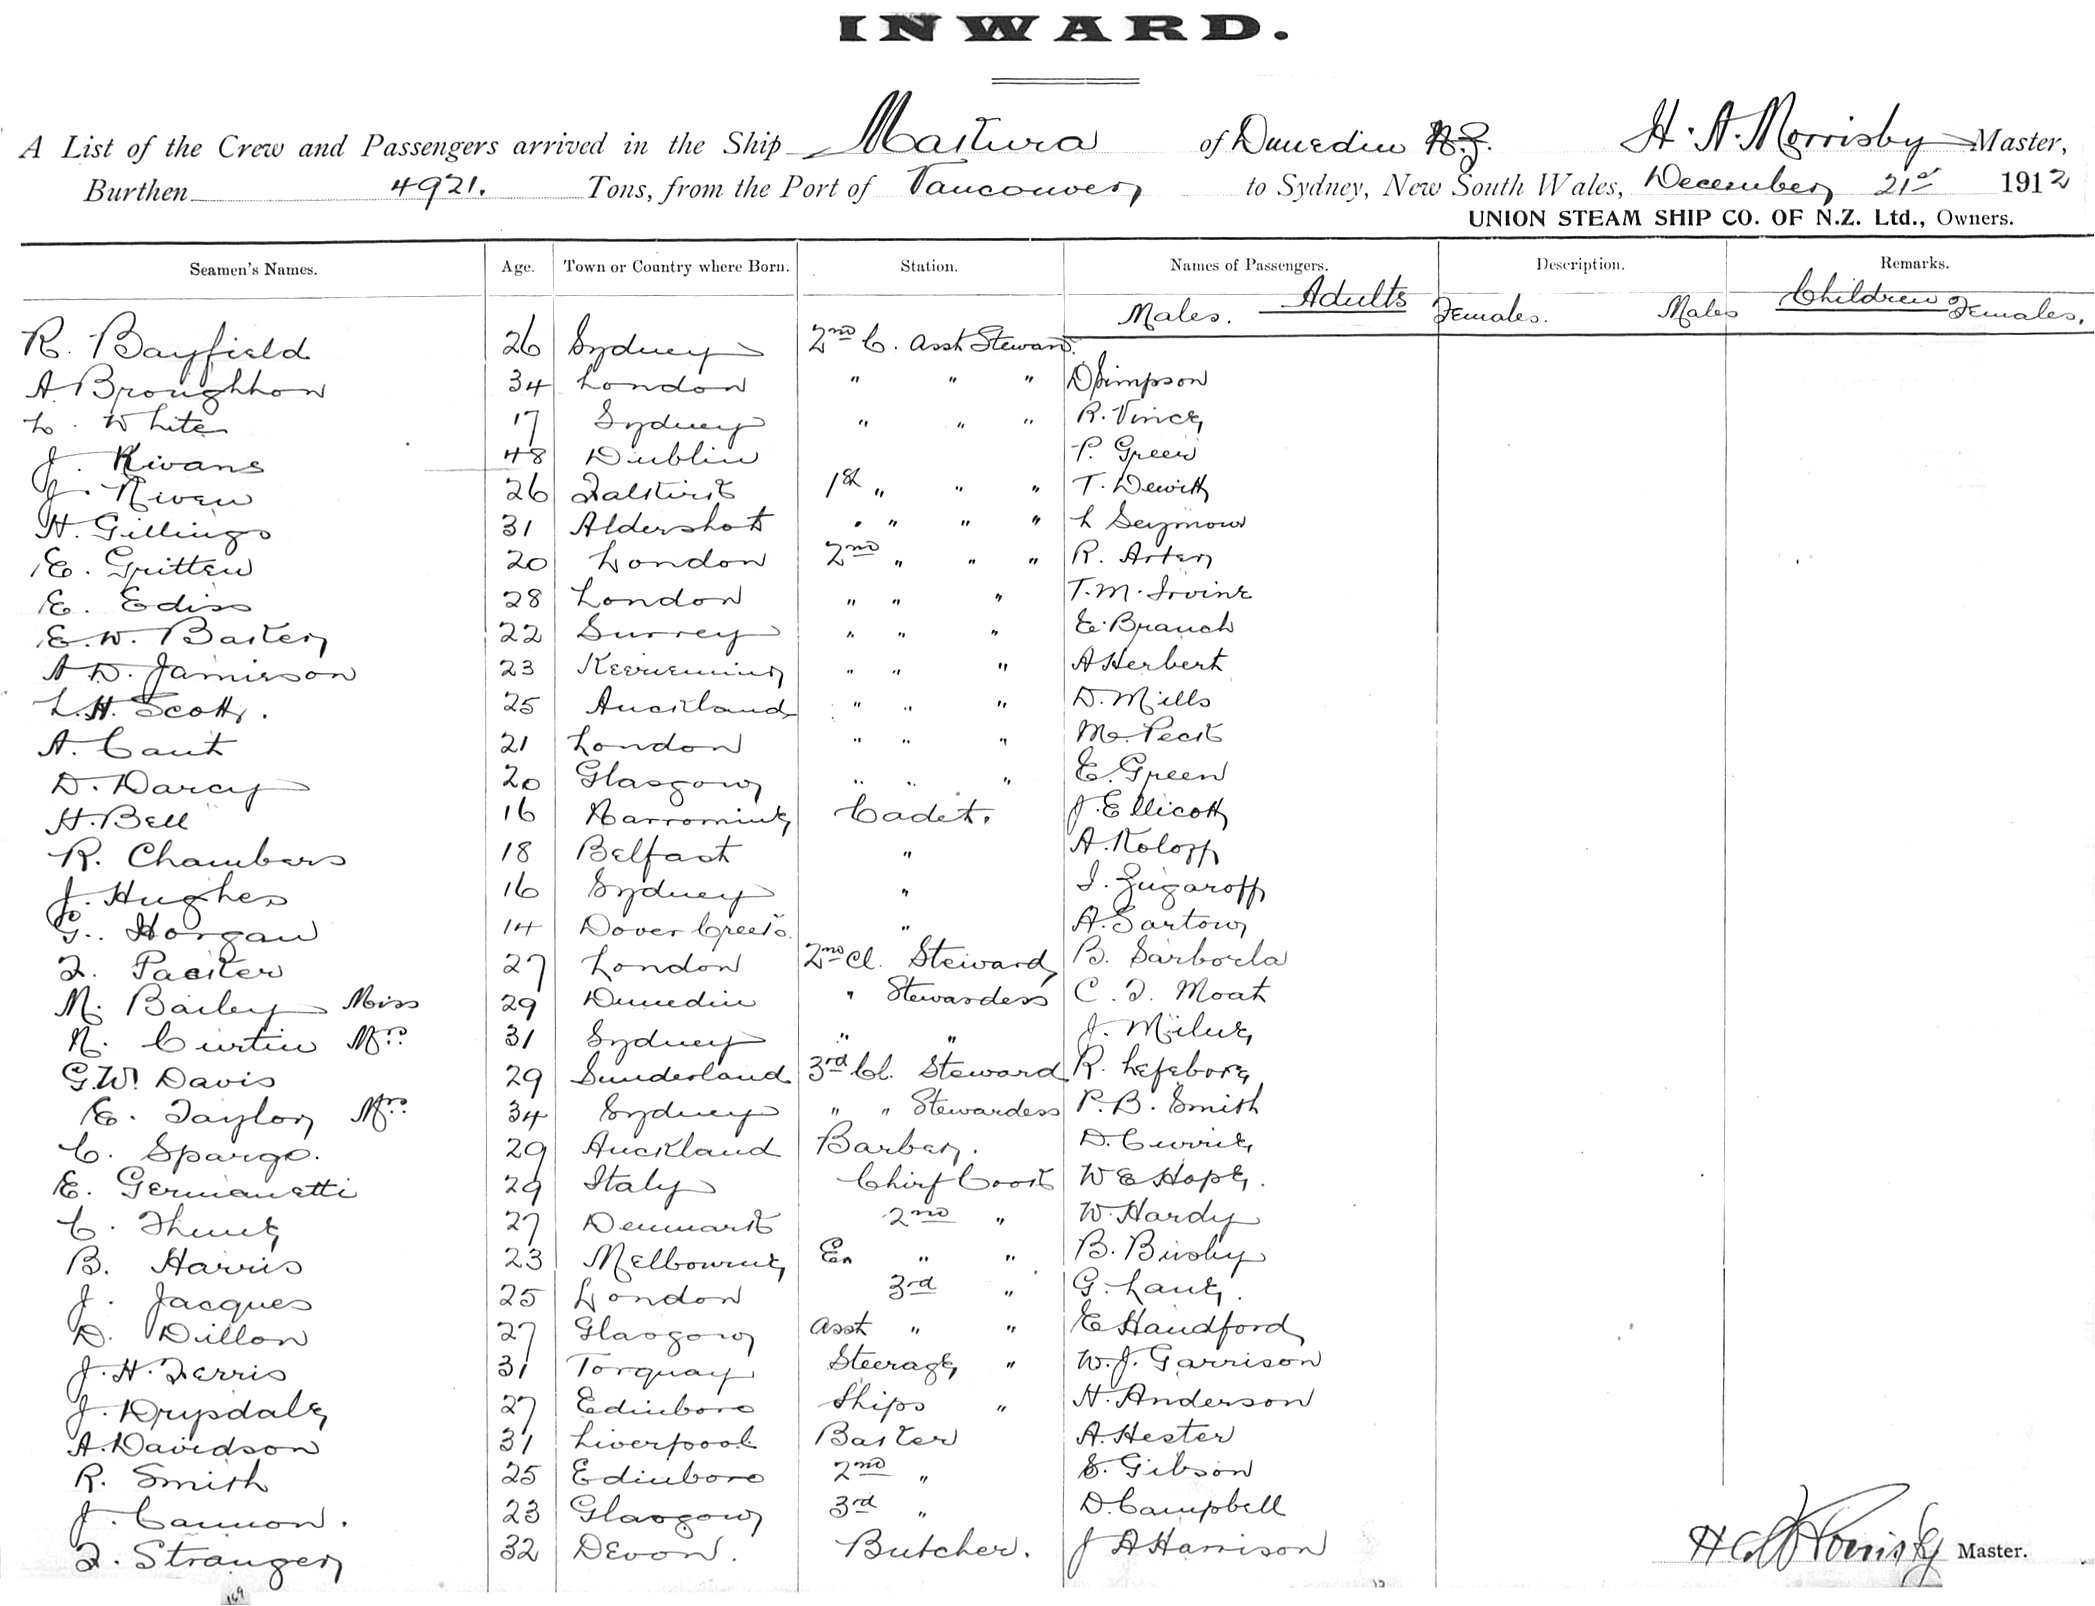 INWARD.
A List of the Crew and Passengers arrived in the Ship Maitura of Dunedin N.Z. H. A. Morrisby Master,
Burthen 4921. Tons, from the Port of Vancouver to Sydney, New South Wales, December 21st 1912
UNION STEAM SHIP CO. OF N.Z. Ltd., Owners.
Seamen's Names. Age. Town or Country where Born. Station. Names of Passengers. Description. Remarks.
Males. Adults Females. Males Children Females.
R. Bayfield 26 Sydney 2nd C. Asst Steward.
A. Broughton 34 London " " " D Simpson
L. White 17 Sydney " " " R. Vince
J. Kivans 48 Dublin P. Green
J. Niven 26 Falkirk 1st " " " T. Dewith
H. Gillings 31 Aldershot " " " L Seymour
E. Gritten 20 London 2nd " " " R. Arter
E. Ediss 28 London " " " T. M. Irvine
E. W. Baker 22 Surrey " " " E. Branch
A. D. Jamieson 23 " " " A Herbert
L. H. Scott. 25 Auckland " " " D. Mills
A. Cant 21 London " " " M. Peck
D. Darcy 20 Glasgow " " " E. Green
H. Bell 16 Narromine Cadet. J. Ellicott
R. Chambers 18 Belfast " A. Koloff
J. Hughes 16 Sydney " I. Zugaroff
G. Horgan 14 Dover Creek " A. Sartow
F. Packer 27 London 2nd Cl. Steward B. Sarboela
M. Bailey Miss 29 Dunedin " Stewardess C. F. Moat
N. Curtin Mrs 31 Sydney " " J. Milne
G. W. Davis 29 Sunderland 3rd Cl. Steward R. Lefebore
E. Taylor Mrs 34 Sydney " " Stewardess P. B. Smith
C. Spargo. 29 Auckland Barber. D. Currie
E. Germanetti 29 Italy Chief Cook W E Hope.
C. Thune 27 Denmark 2nd " W. Hardy
B. Harris 23 Melbourne Ex " " B. Busby
J. Jacques 25 London 3rd " G. Lane.
D. Dillon 27 Glasgow Asst " " E Handford
J. H. Ferris 31 Torquay Steerage " W. J. Garrison
J. Drysdale 27 Edinboro Ships " H. Anderson
A. Davidson 31 Liverpool Baker A. Hester
R. Smith 25 Edinboro 2nd " S. Gibson
J. Cannon. 23 Glasgow 3rd " D. Campbell
F. Stranger 32 Devon. Butcher. J A Harrison
H A Morrisby Master.